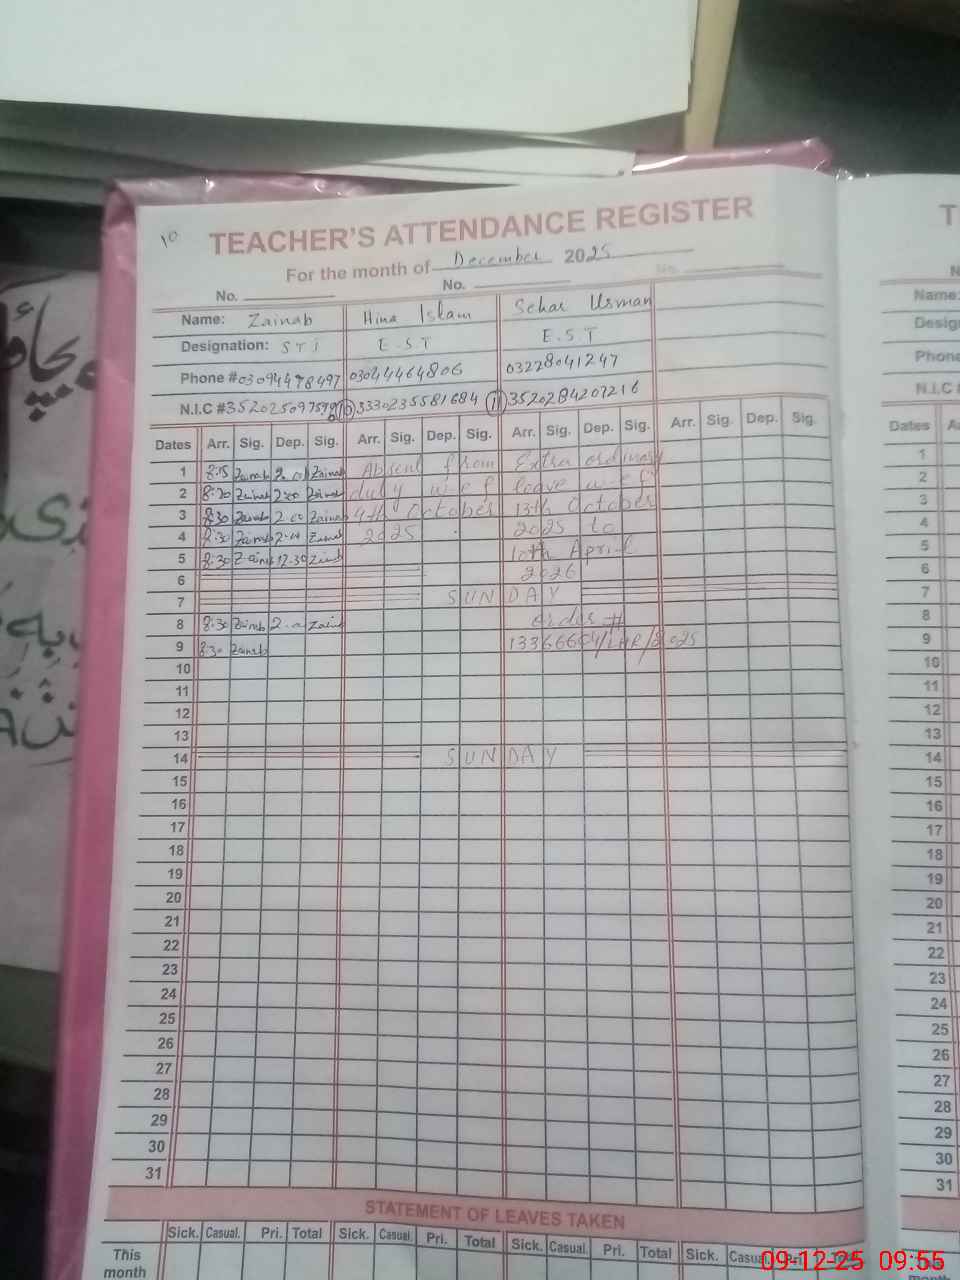 10
TEACHER'S ATTENDANCE REGISTER
For the month of December 2025
No. No. No.
Name: Zainab Hina Islam Sehar Usman
Designation: STI E.S.T E.S.T
Phone # 03094478497 03044464806 03228041247
N.I.C # 10 3330235581684 11 3520284207216
Dates Arr. Sig. Dep. Sig. Arr. Sig. Dep. Sig. Arr. Sig. Dep. Sig. Arr. Sig. Dep. Sig.
1 8:15 Zainab Zainab Absent from Extra ordinary
2 8:20 Zainab 2:00 Zainab duty w.e.f leave w.e.f
3 8:30 Zainab 2:00 Zainab 4th October 13th October
4 8:30 Zainab Zainab 2025 2025 to
5 8:30 Zainab 12:30 10th April
6 2026
7 SUNDAY
8 8:30 Zainab order #
9 8:30 Zainab
10
11
12
13
14 SUNDAY
15
16
17
18
19
20
21
22
23
24
25
26
27
28
29
30
31
STATEMENT OF LEAVES TAKEN
Sick. Casual. Pri. Total Sick. Casual. Pri. Total Sick. Casual. Pri. Total Sick.
This
month
Name:
Phone
N.I.C
Dates
1
2
3
4
5
6
7
8
9
10
11
12
13
14
15
16
17
18
19
20
21
22
23
24
25
26
27
28
29
30
31
09-12-25 09:55